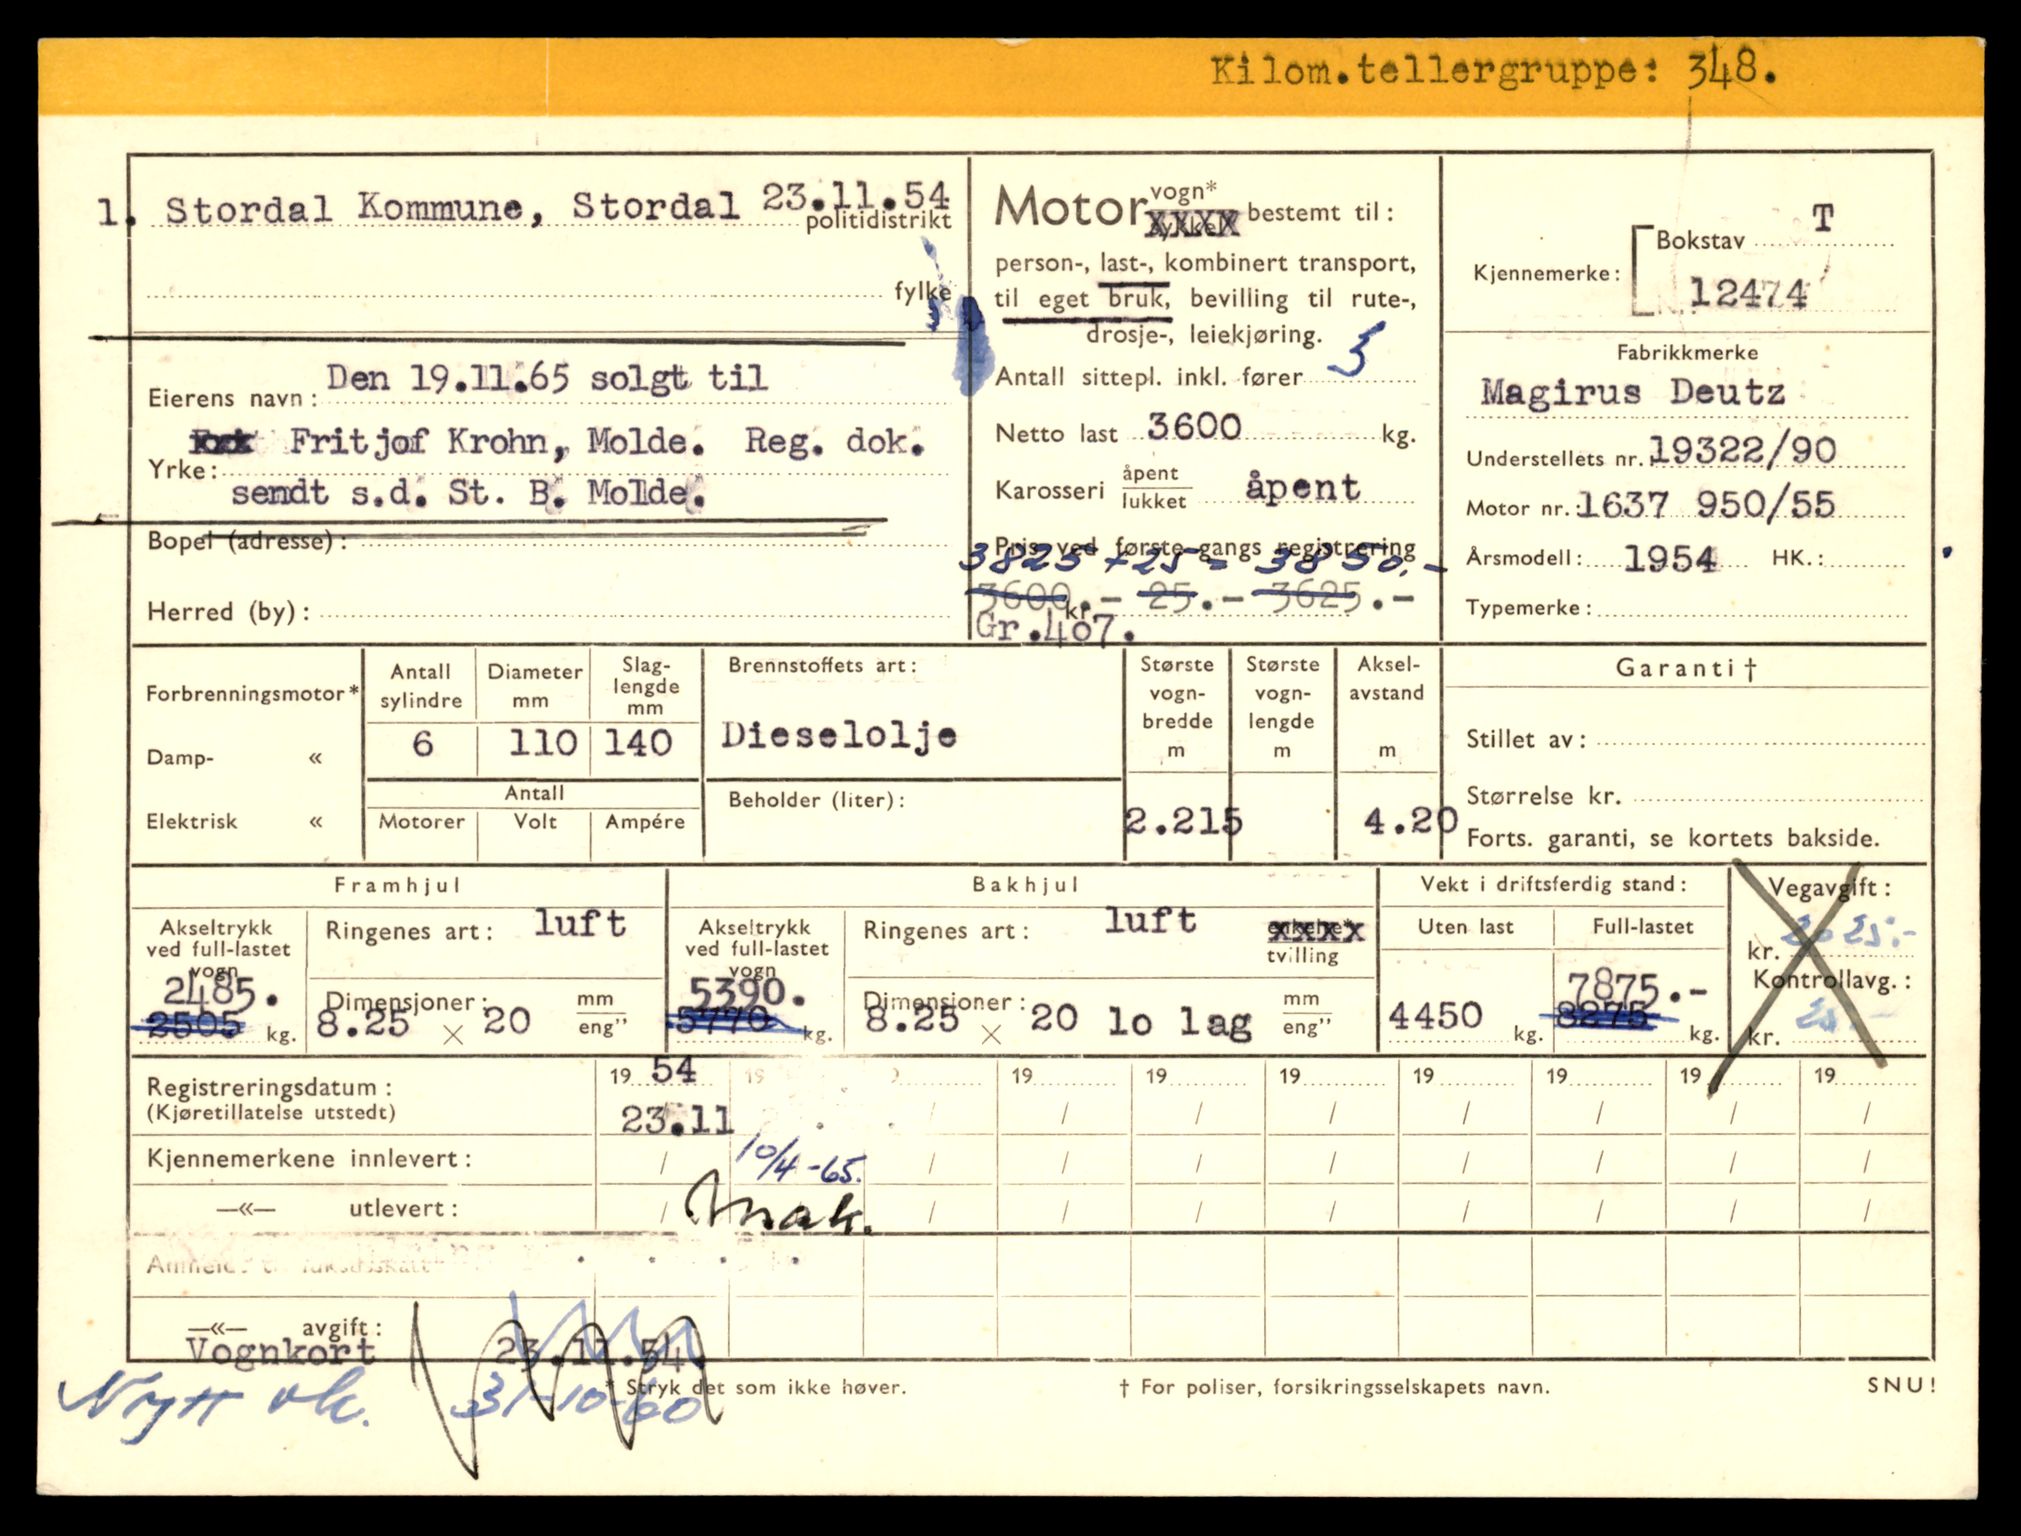 Kilom.tellergruppe: 348.
1. Stordal Kommune, Stordal 23.11.54
politidistrikt
fylke
Eierens navn: Den 19.11.65 solgt til
Fritjof Krohn, Molde. Reg. dok.
Yrke:
sendt s.d. St. B. Molde.
Bopel (adresse):
Herred (by):
Motor vogn* bestemt til:
person-, last-, kombinert transport,
til eget bruk, bevilling til rute-,
drosje-, leiekjøring.
Antall sittepl. inkl. fører 3
Netto last 3600 kg.
Karosseri åpent lukket åpent
Pris ved første gangs registrering
3825 + 25 = 3850.-
3600.- 25.- 3625.-
kr.
Gr.407.
Bokstav T
Kjennemerke:
12474
Fabrikkmerke
Magirus Deutz
Understellets nr. 19322/90
Motor nr.: 1637 950/55
Årsmodell: 1954 HK.:
Typemerke:
Forbrenningsmotor*
Damp- «
Elektrisk «
Antall sylindre
Diameter mm
Slag-lengde mm
6 110 140
Antall
Motorer Volt Ampére
Brennstoffets art:
Dieselolje
Beholder (liter):
Største vogn-bredde m
2.215
Største vogn-lengde m
Aksel-avstand m
4.20
Garanti †
Stillet av:
Størrelse kr.
Forts. garanti, se kortets bakside.
Framhjul
Akseltrykk ved full-lastet vogn
2485.
2505 kg.
Ringenes art: luft
Dimensjoner: mm
8.25 × 20 eng”
Bakhjul
Akseltrykk ved full-lastet vogn
5390.
5770 kg.
Ringenes art: luft enkelte* tvilling
Dimensjoner: mm
8.25 × 20 10 lag eng”
Vekt i driftsferdig stand:
Uten last Full-lastet
7875.-
4450 kg. 8275 kg.
Vegavgift:
kr. 2025.-
Kontrollavg.:
kr. 25.-
Registreringsdatum: 19 54 19 19 19 19 19 19 19 19
(Kjøretillatelse utstedt) 23.11
Kjennemerkene innlevert: 10/4-65.
—«— utlevert:
—«— avgift:
Vognkort 23.11.54.
Nytt vk. 31-10-60
* Stryk det som ikke høver.
† For poliser, forsikringsselskapets navn.
SNU!